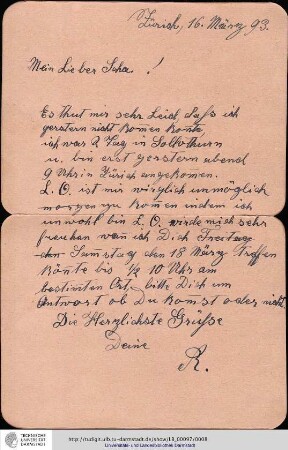 Zürich, 16. März 93.
Mein Lieber Scha. !
Es thut mir sehr Leid, daß ich
gerstern nicht komen konte,
ich war 2 Tag in Sollothurn
u. bin erst gerstern abend
9 Uhr in Zürich angekomen.
L. O. ist mir wirglich unmöglich
morgen zu komen indem ich
unwohl bin L. O. würde mich sehr
freuhen wan ich Dich Freitag
den Samstag den 18 März treffen
könte bis ½ 10 Uhr am
bestimten Ort, bitte Dich um
Antwort ob Du komst oder nicht
Die Herzlichste Grüße
Deine
R.
TECHNISCHE
UNIVERSITÄT
DARMSTADT
http://tudigit.ulb.tu-darmstadt.de/show/18_00097/0008
Universitäts- und Landesbibliothek Darmstadt